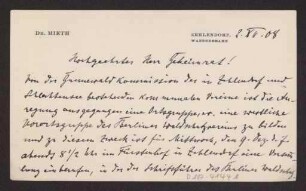 DR. MIETH
ZEHLENDORF,
WANNSEEBAHN
3. XII. 08
Hochgeehrter Herr Geheimrat!
Von der Grunewald Kommission des in Zehlendorf und
bestehenden kommunalen Vereine ist die An-
regung ausgegangen eine Ortsgruppe, eine westliche
Vorortsgruppe des Berliner Waldschutzvereins zu bilden
und zu diesem Zweck ist für Mittwoch, den 9. Dez. d. J.
abends 8 1/2 Uhr im Fürstenhof in Zehlendorf eine Versamm-
lung einberufen, in der der Schriftführer des Berliner